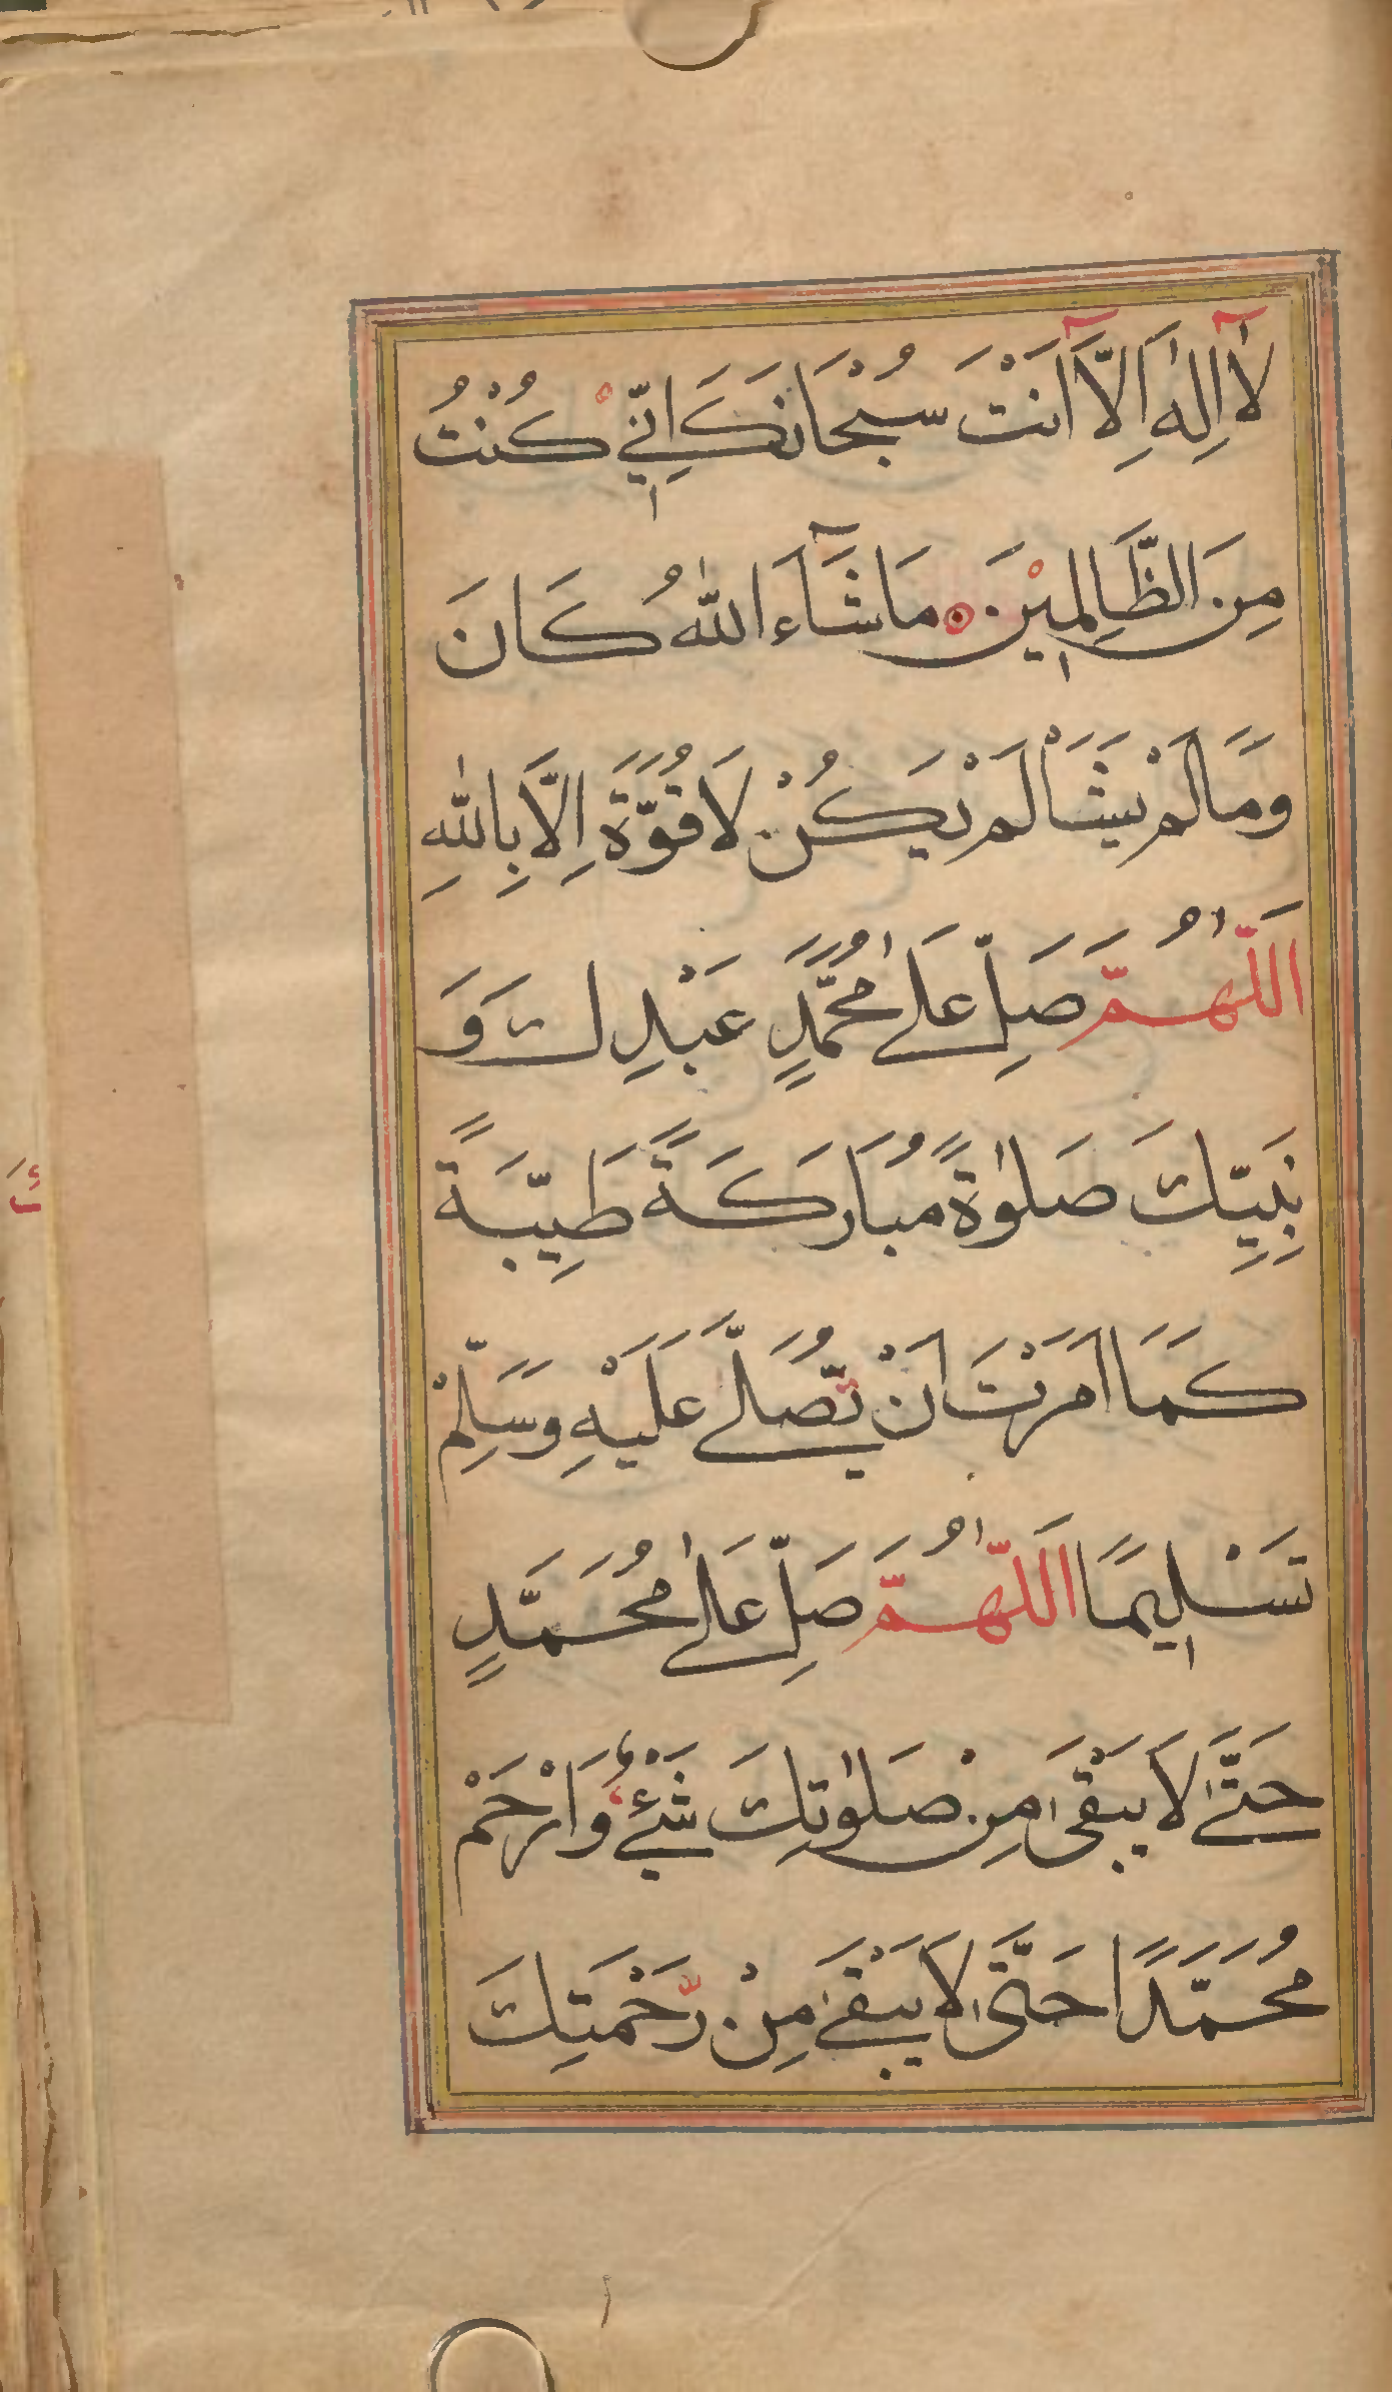 لَآ اِلٰهَ اِلَّآ اَنْتَ سُبْحَانَكَ اِنِّيْ كُنْتُ
مِنَ الظَّالِمِيْنَ مَا شَآءَ اللّٰهُ كَانَ
وَمَا لَمْ يَشَأْ لَمْ يَكُنْ لَا قُوَّةَ اِلَّا بِاللّٰهِ
اَللّٰهُمَّ صَلِّ عَلٰى مُحَمَّدٍ عَبْدِكَ وَ
نَبِيِّكَ صَلٰوةً مُبَارَكَةً طَيِّبَةً
كَمَا اَمَرْتَ اَنْ تُصَلِّىَ عَلَيْهِ وَسَلِّمْ
تَسْلِيمًا اَللّٰهُمَّ صَلِّ عَلٰى مُحَمَّدٍ
حَتّٰى لَا يَبْقٰى مِنْ صَلٰوتِكَ شَيْءٌ وَارْحَمْ
مُحَمَّدًا حَتّٰى لَا يَبْقٰى مِنْ رَّحْمَتِكَ